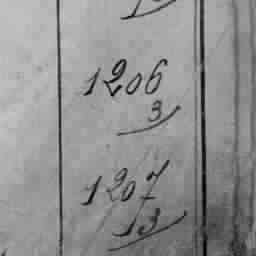 1206
3
1207
13